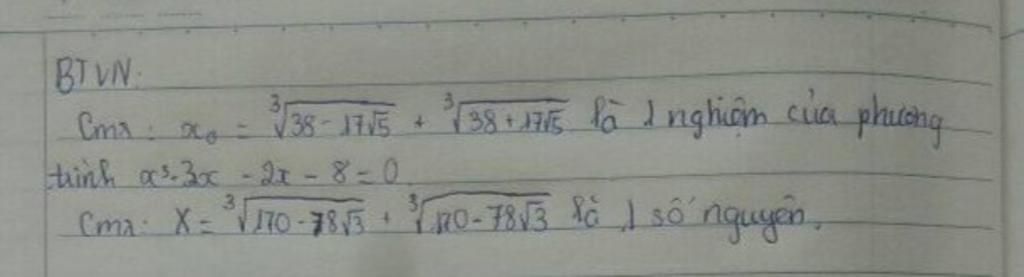 BTVN.
Cmr: x₀ = ∛(38 - 17√5) + ∛(38 + 17√5) là 1 nghiệm của phương
trình x³ - 3x - 2x - 8 = 0
Cmr: X = ∛(170 - 78√3) + ∛(170 - 78√3) là 1 số nguyên.